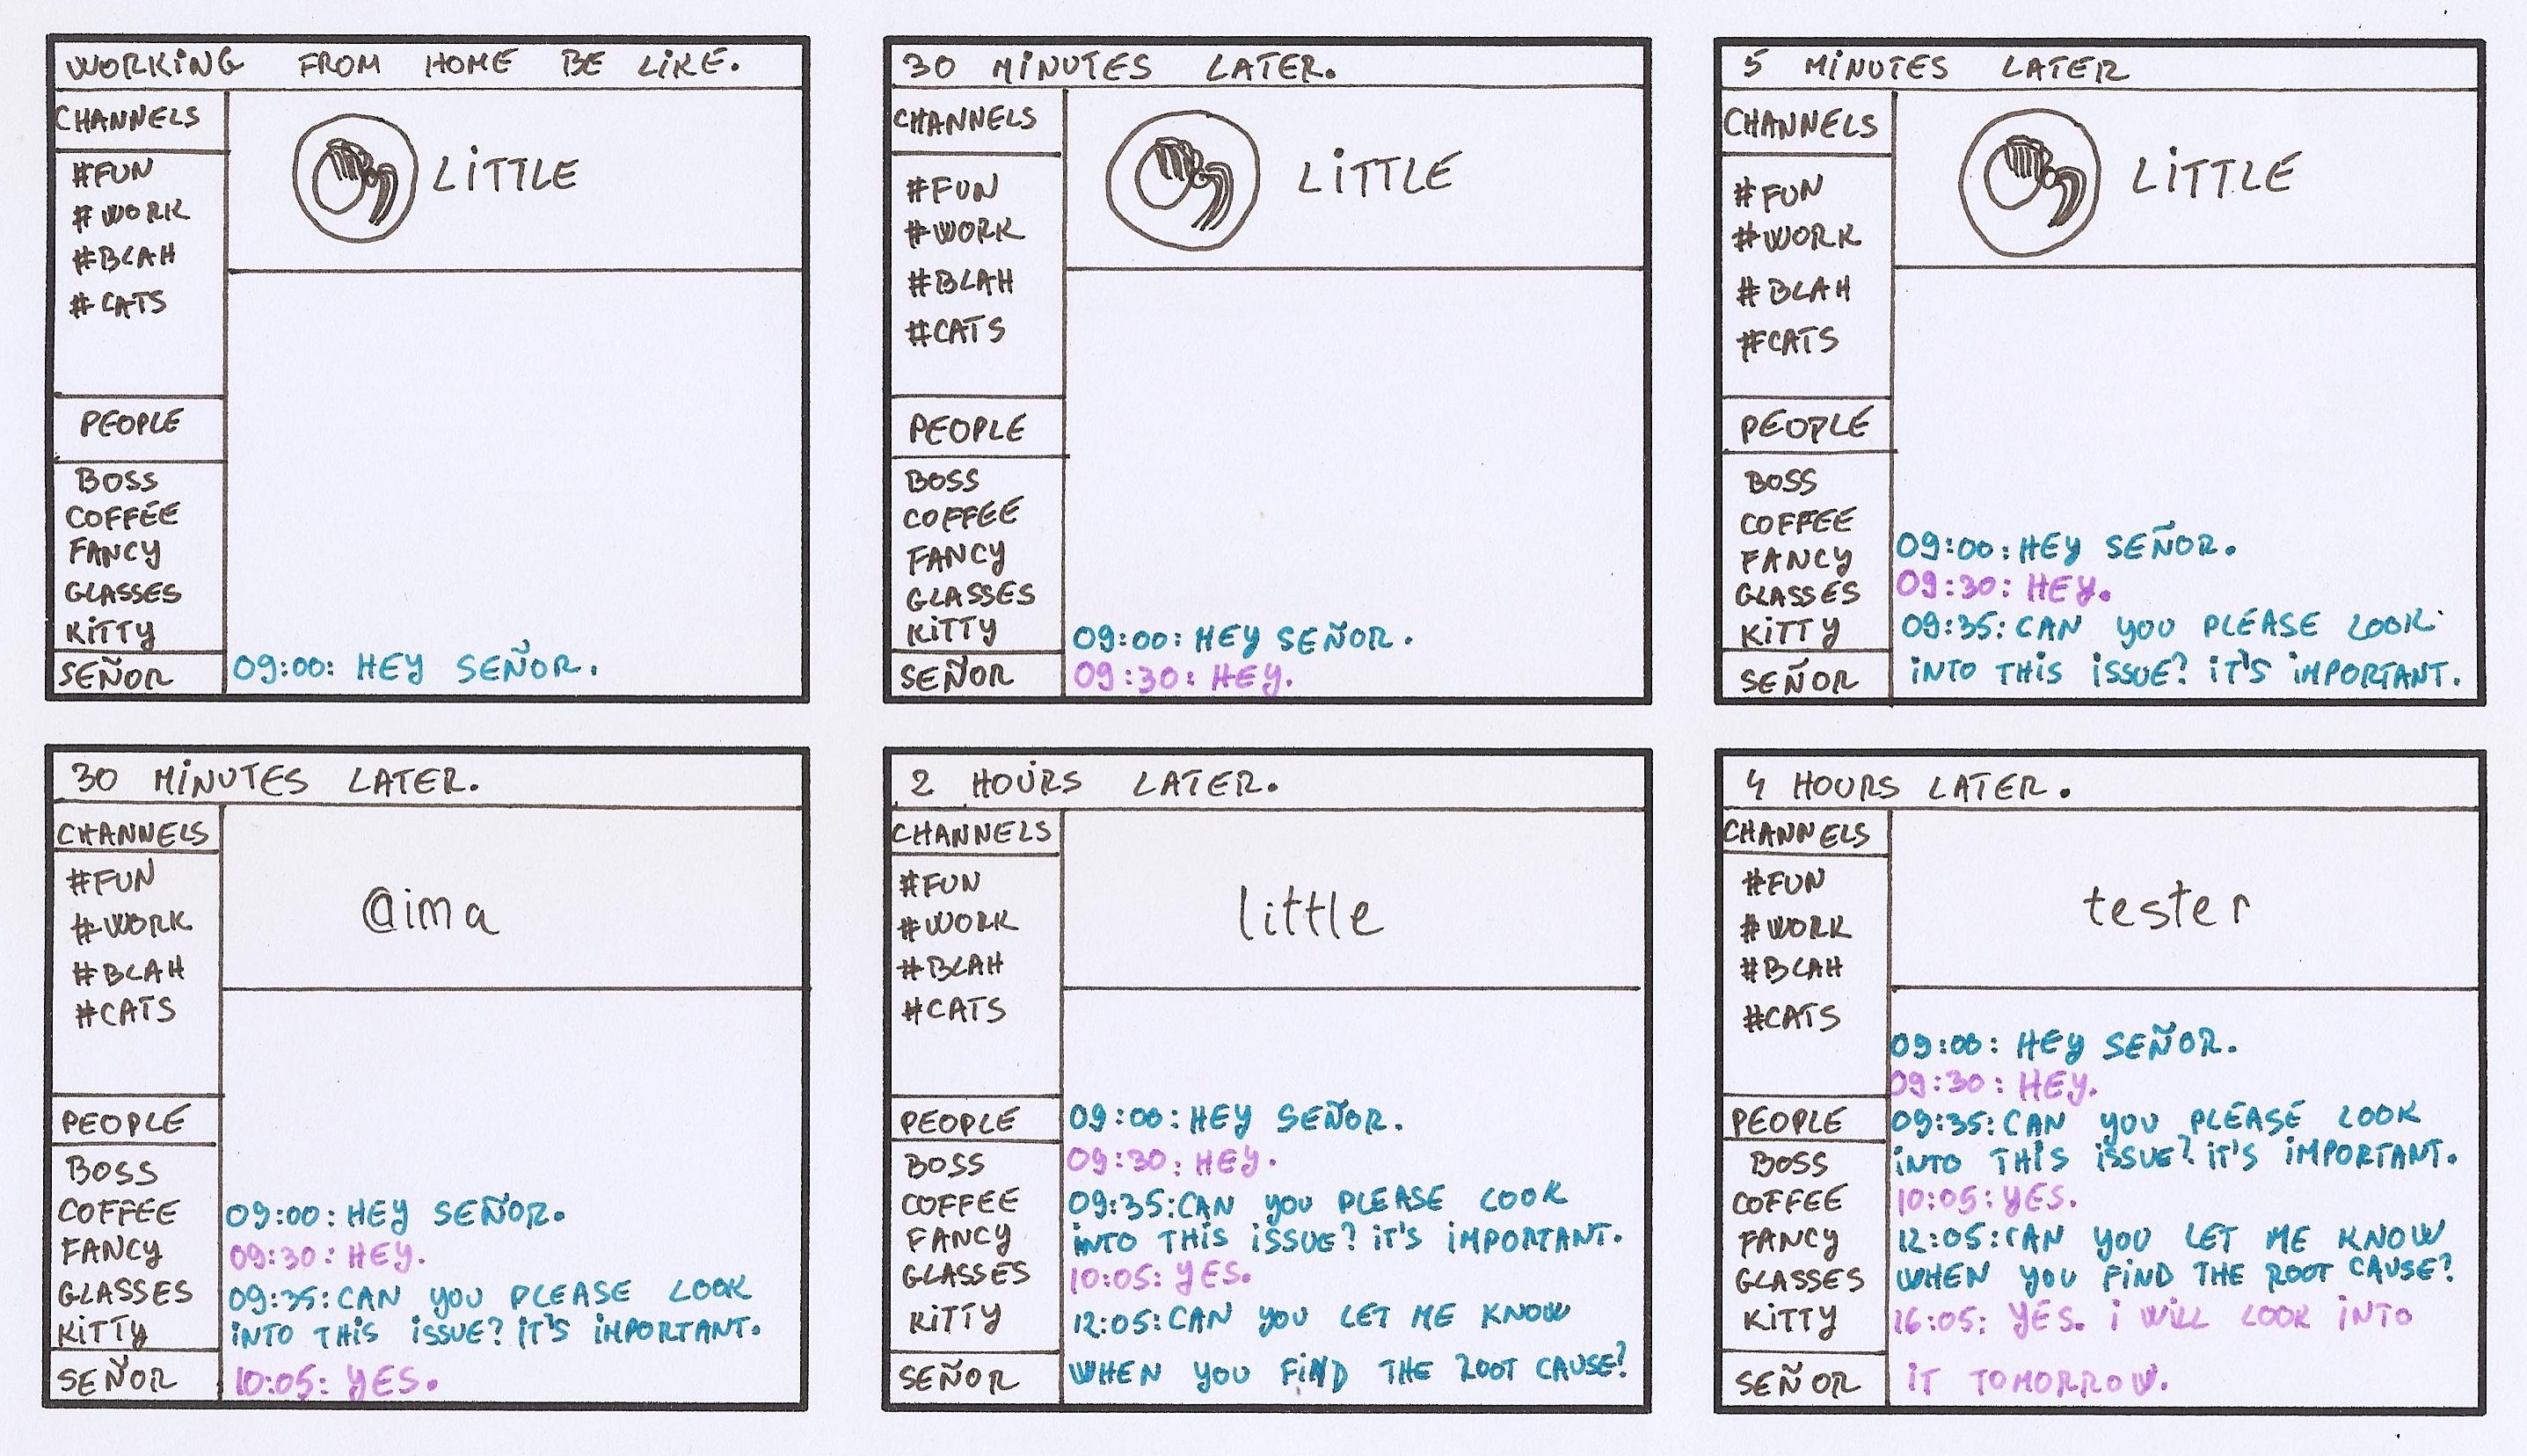 WORKING FROM HOME BE LIKE.
CHANNELS
#FUN
#WORK
#BLAH
#CATS
PEOPLE
BOSS
COFFEE
FANCY
GLASSES
KITTY
SEÑOR
LITTLE
09:00: HEY SEÑOR.
30 MINUTES LATER.
CHANNELS
#FUN
#WORK
#BLAH
#CATS
PEOPLE
BOSS
COFFEE
FANCY
GLASSES
KITTY
SEÑOR
LITTLE
09:00: HEY SEÑOR.
09:30: HEY.
5 MINUTES LATER
CHANNELS
#FUN
#WORK
#BLAH
#CATS
PEOPLE
BOSS
COFFEE
FANCY
GLASSES
KITTY
SEÑOR
LITTLE
09:00: HEY SEÑOR.
09:30: HEY.
09:35: CAN YOU PLEASE LOOK
INTO THIS ISSUE? IT'S IMPORTANT.
30 MINUTES LATER.
CHANNELS
#FUN
#WORK
#BLAH
#CATS
PEOPLE
BOSS
COFFEE
FANCY
GLASSES
KITTY
SEÑOR
@ima
09:00: HEY SEÑOR.
09:30: HEY.
09:35: CAN YOU PLEASE LOOK
INTO THIS ISSUE? IT'S IMPORTANT.
10:05: YES.
2 HOURS LATER.
CHANNELS
#FUN
#WORK
#BLAH
#CATS
PEOPLE
BOSS
COFFEE
FANCY
GLASSES
KITTY
SEÑOR
little
09:00: HEY SEÑOR.
09:30: HEY.
09:35: CAN YOU PLEASE LOOK
INTO THIS ISSUE? IT'S IMPORTANT.
10:05: YES.
12:05: CAN YOU LET ME KNOW
WHEN YOU FIND THE ROOT CAUSE?
4 HOURS LATER.
CHANNELS
#FUN
#WORK
#BLAH
#CATS
PEOPLE
BOSS
COFFEE
FANCY
GLASSES
KITTY
SEÑOR
tester
09:00: HEY SEÑOR.
09:30: HEY.
09:35: CAN YOU PLEASE LOOK
INTO THIS ISSUE? IT'S IMPORTANT.
10:05: YES.
12:05: CAN YOU LET ME KNOW
WHEN YOU FIND THE ROOT CAUSE?
16:05: YES. I WILL LOOK INTO
IT TOMORROW.